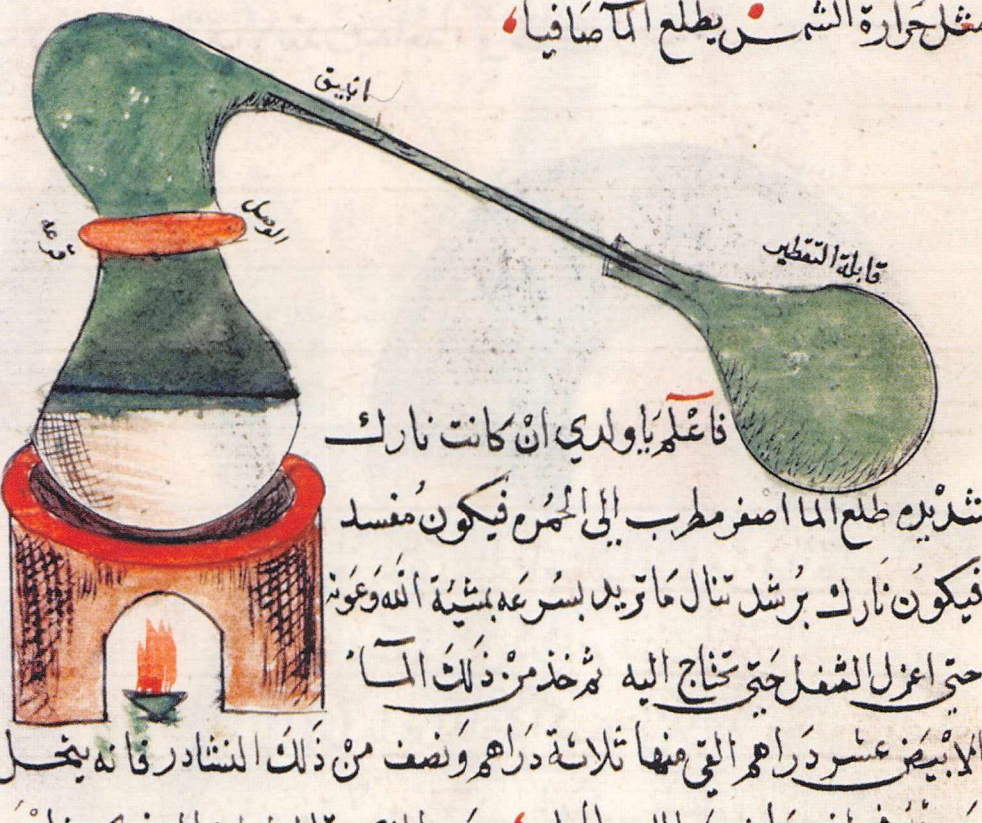 مثل حرارة الشمس يطلع الما صافيا
انبيق
الوصل
قرعه
قابلة التقطير
فاعْلم يَا ولدي انْ كانت نارك
شديْده طلع الما اصفر مطرب الى الحُمره فيكون مُفسد
فيكوُن نَارك برُشد تنال مَا تريد بسُرعَه بمشيَة اللّه وَعَونه
حتى اعزل الثفل حَتى تحتاج اليه ثم خذ منْ ذَلكَ المآءُ
الابْيَض عشر دَراهم القي منها ثلاثة دَراهم وَنصف منْ ذَلكَ النشادر فانه ينحل